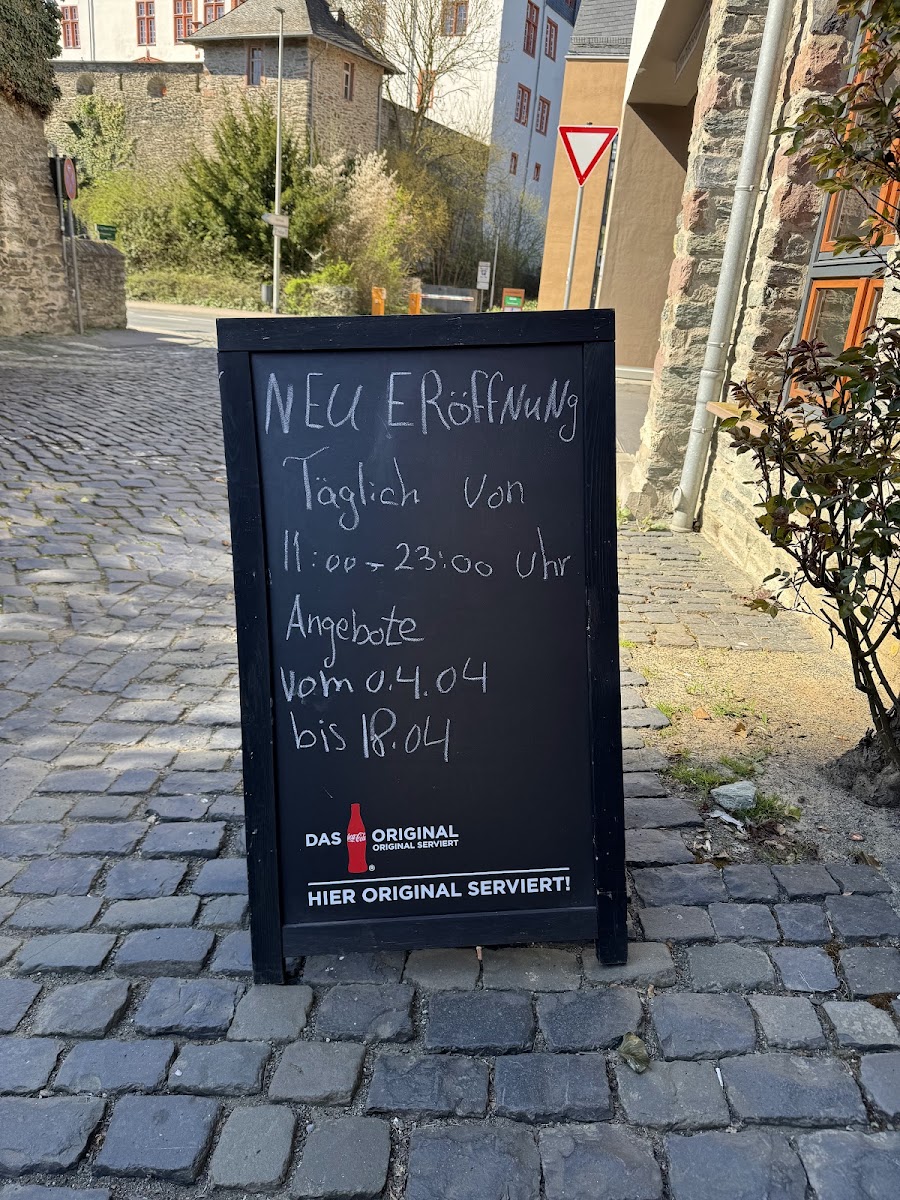 NEU ERöffNuNg
Täglich von
11:00 - 23:00 uhr
Angebote
vom 0.4.04
bis 18.04
DAS Coca-Cola ® ORIGINAL
ORIGINAL SERVIERT
HIER ORIGINAL SERVIERT!